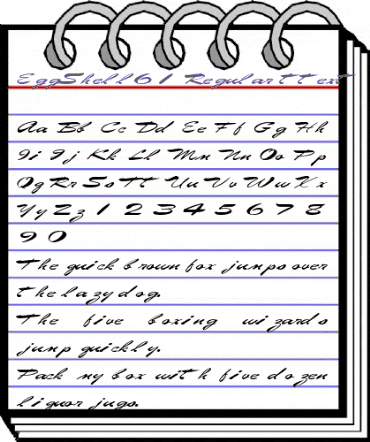 EggShell61 Regular ttext
Aa Bb Cc Dd Ee Ff Gg Hh
Ii Jj Kk Ll Mm Nn Oo Pp
Qq Rr Ss Tt Uu Vv Ww Xx
Yy Zz 1 2 3 4 5 6 7 8
9 0
The quick brown fox jumps over
the lazy dog.
The five boxing wizards
jump quickly.
Pack my box with five dozen
liquor jugs.